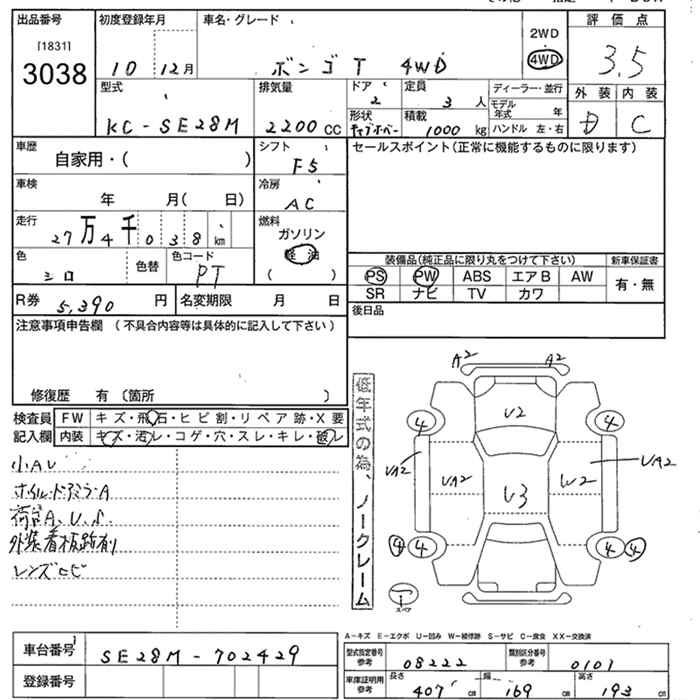 出品番号
[1831]
3038
初度登録年月
10 12月
車名・グレード
ボンゴT 4WD
2WD
4WD
評価点
3.5
型式
KC-SE28M
排気量
2200 CC
ドア
2
定員
3 人
形状
積載
1000 kg
ディーラー・並行
モデル年式 年
ハンドル 左・右
外装 内装
D C
車歴
自家用・( )
シフト
F5
セールスポイント(正常に機能するものに限ります)
車検
年 月( 日)
冷房
AC
走行
27万4千038 km
燃料
ガソリン
軽油
( )
色
シロ
色替
色コード
PT
装備品(純正品に限り丸をつけて下さい)
新車保証書
PS PW ABS エアB AW
SR ナビ TV カワ
有・無
R券 5,390 円
名変期限 月 日
後日品
注意事項申告欄 (不具合内容等は具体的に記入して下さい)
修復歴 有 (箇所 )
検査員記入欄
FW キズ・飛石・ヒビ割・リペア跡・X要
内装 キズ・汚レ・コゲ・穴・スレ・キレ・破レ
小AU
ホイル・ドアミラーA
荷台A、U、S
外装看板跡有
レンズヒビ
低年式の為、ノークレーム
A2 A2
U2
4 4
UA2 UA2 W2 UA2
U3
4 4 4 4
スペア
A-キズ E-エクボ U-凹み W-補修跡 S-サビ C-腐食 XX-交換済
車台番号
SE28M-702429
登録番号
型式指定番号 参考
08222
類別区分番号 参考
0101
車庫証明用 参考
長さ 407 cm
幅 169 cm
高さ 193 cm